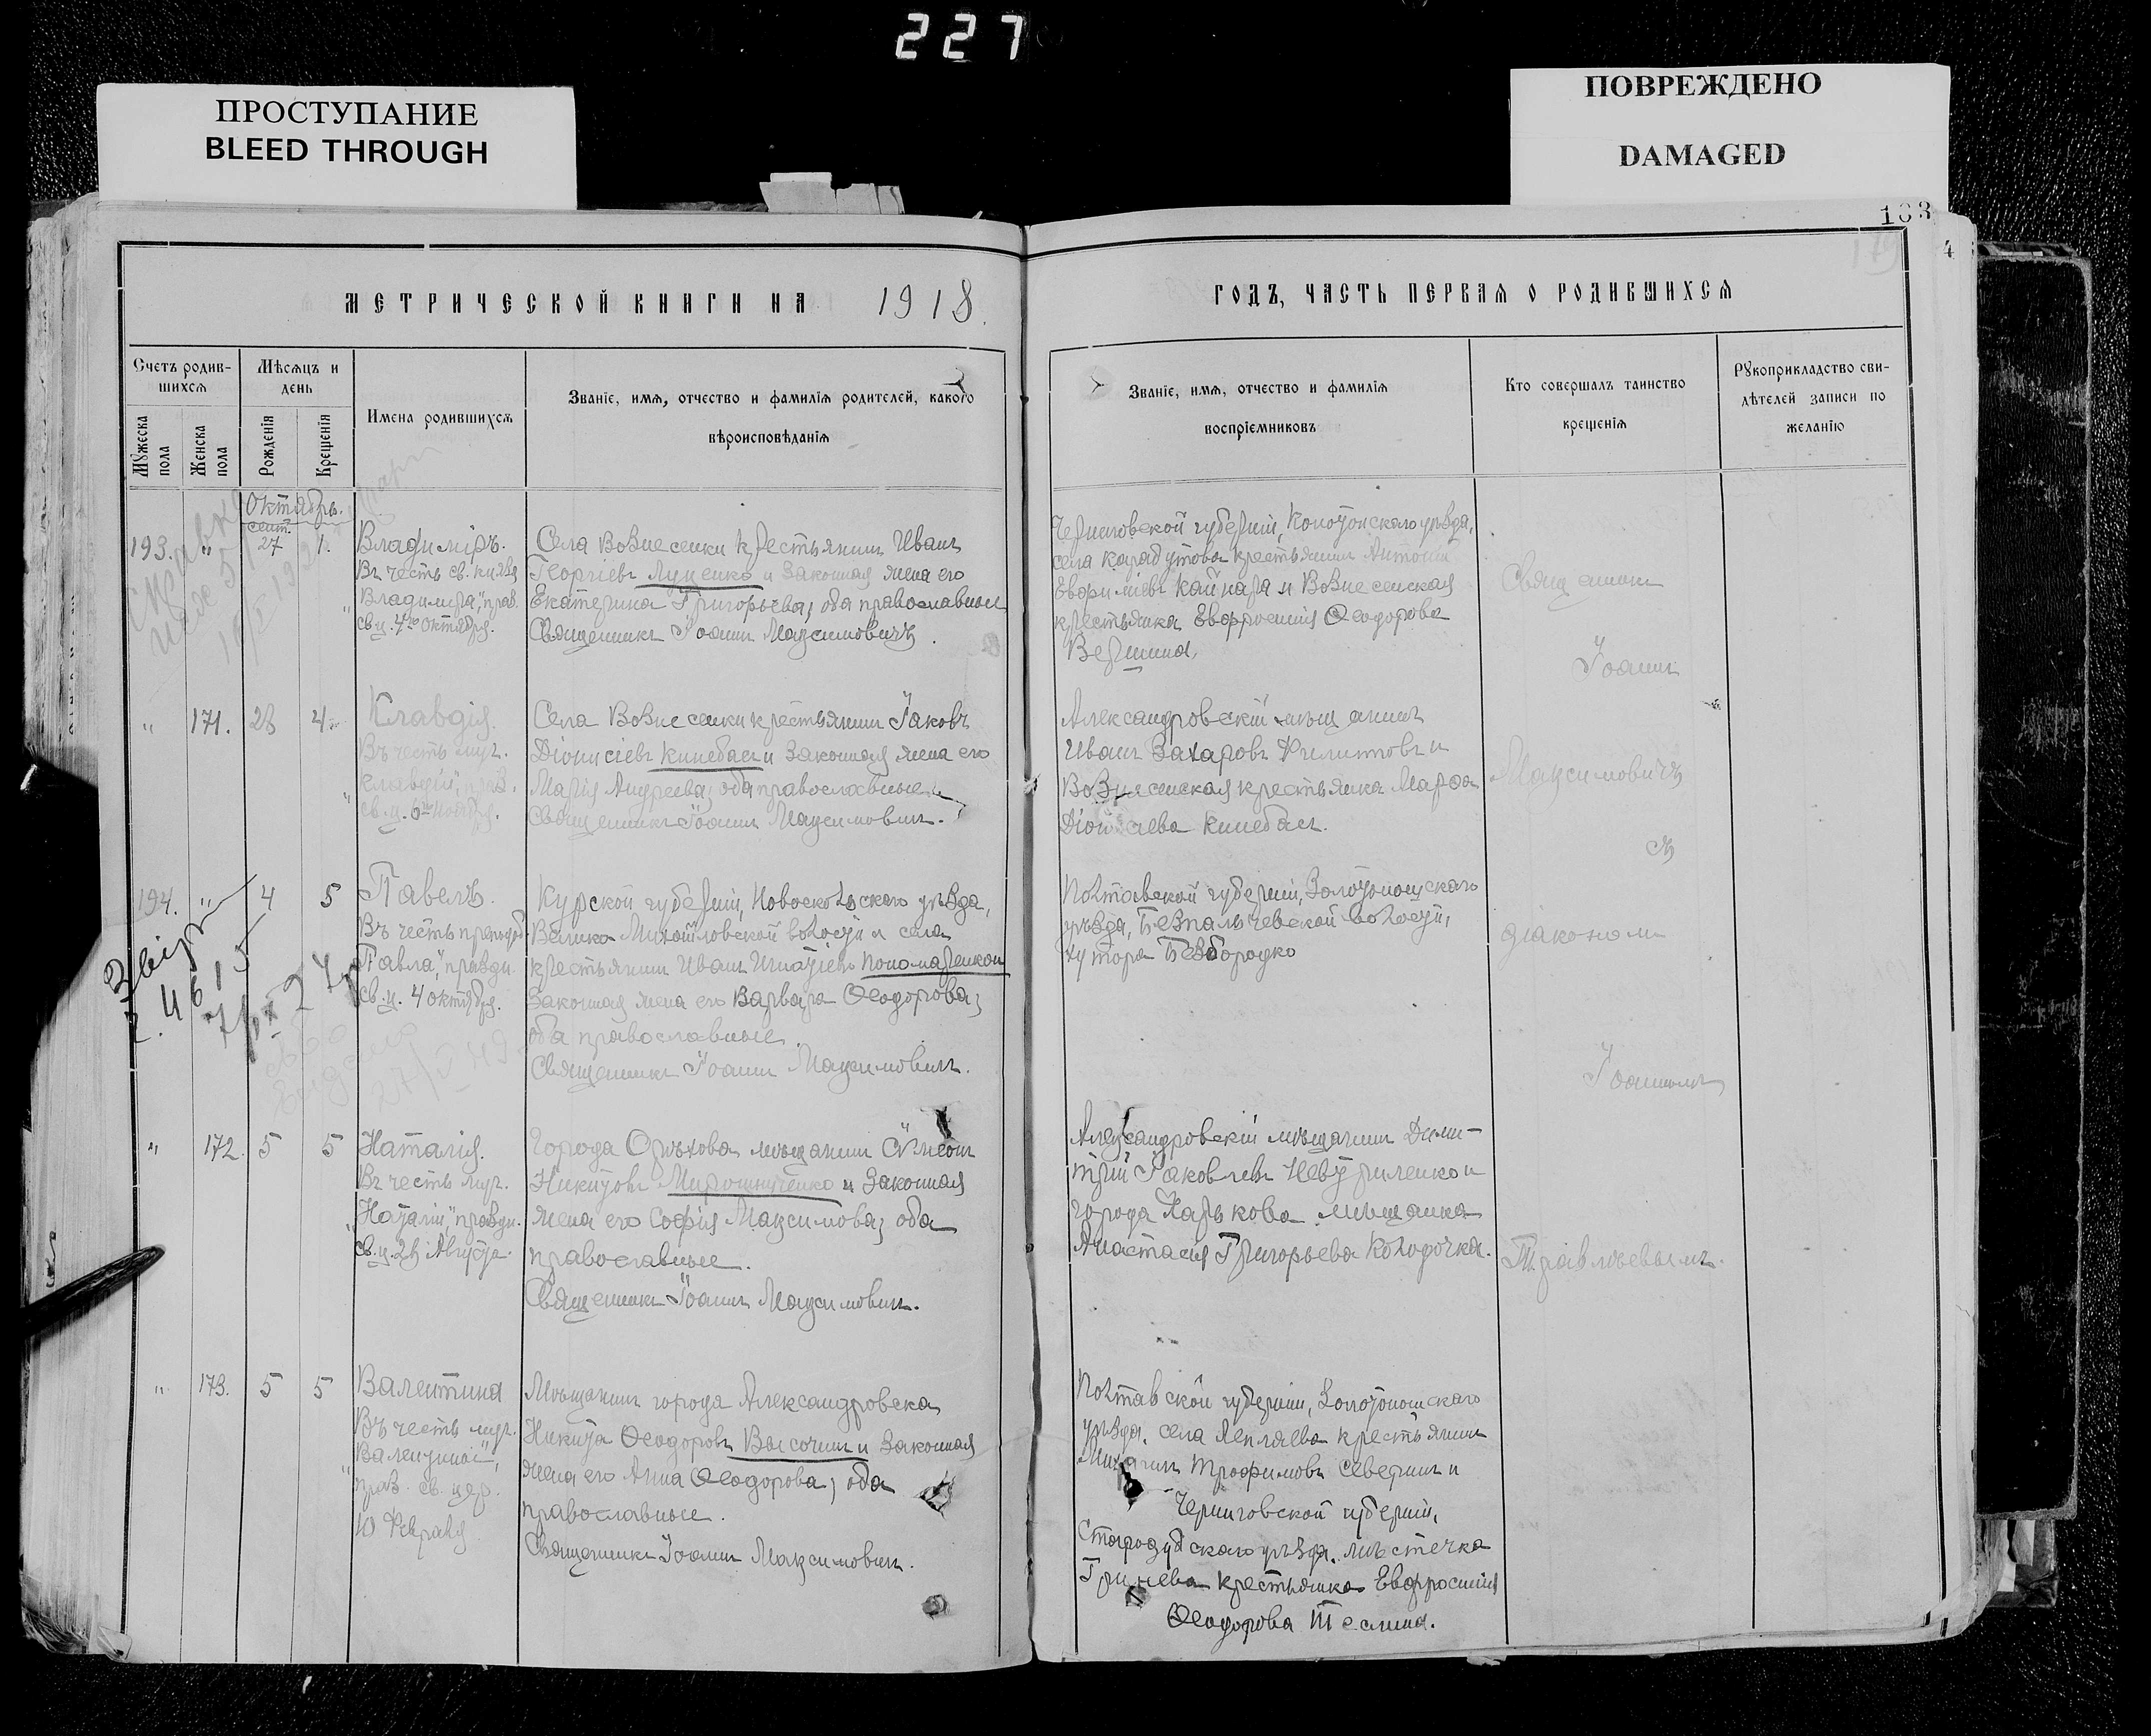 227
ПРОСТУПАНИЕ
BLEED THROUGH
ПОВРЕЖДЕНО
DAMAGED
103
4
МЕТРИЧЕСКОЙ КНИГИ НА 1918.
Счетъ родив-
шихся
Мужеска
пола
Женска
пола
Мѣсяцъ и
день
Рожденія
Крещенія
Имена родившихся
Званіе, имя, отчество и фамилія родителей, какого
вѣроисповѣданія
Октябрь.
сент.
193. " 27 1.
Владиміръ.
Въ честь св. князя
"Владимира", праз.
св. ц. 4го Октября.
Села Вознесенки крестьянинъ Иванъ
Георгіевъ Луценко и законная жена его
Екатерина Григорьева; оба православные
Священникъ Іоаннъ Максимовичъ.
" 171. 28 4.
Клавдія.
Въ честь муч.
"Клавдіи", праз.
св. ц. 6го Ноября.
Села Вознесенки крестьянинъ Іаковъ
Діонисіевъ Кинебасъ и законная жена его
Марія Андреева; оба православные.
Священникъ Іоаннъ Максимовичъ.
194. " 4 5
Павелъ.
Въ честь преподоб.
"Павла", праздн.
св. ц. 4 октября.
Курской губерніи, Новооскольскаго уѣзда,
Велико-Михайловской волости и села
крестьянинъ Иванъ Игнатіевъ Пономаренко и
законная жена его Варвара Ѳеодорова;
оба православные.
Священникъ Іоаннъ Максимовичъ.
" 172. 5 5
Наталія.
Въ честь муч.
"Наталіи" праздн.
св. ц. 26 Августа.
Города Орѣхова мѣщанинъ Сѵмеонъ
Никитовъ Мирошниченко и законная
жена его Софія Максимова; оба
православные.
Священникъ Іоаннъ Максимовичъ.
" 173. 5 5
Валентина
Въ честь муч.
"Валентины",
праз. св. цер.
10 Февраля.
Мѣщанинъ города Александровска
Никита Ѳеодоровъ Высочинъ и законная
жена его Анна Ѳеодорова; оба
православные.
Священникъ Іоаннъ Максимовичъ.
ГОДЪ, ЧАСТЬ ПЕРВАЯ О РОДИВШИХСЯ
Званіе, имя, отчество и фамилія
воспріемниковъ
Кто совершалъ таинство
крещенія
Рукоприкладство сви-
дѣтелей записи по
желанію
Черниговской губерніи, Конотопскаго уѣзда,
села Карабутова крестьянинъ Антоній
Евфиміевъ Кайнара и Вознесенская
крестьянка Евфросинія Ѳеодорова
Вершина.
Александровскій мѣщанинъ
Иванъ Захаровъ Филиповъ и
Вознесенская крестьянка Марѳа
Діонисіева Кинебасъ.
Полтавской губерніи, Золотоношскаго
уѣзда, Безпальчевской волости,
хутора Безбородко
Александровскій мѣщанинъ Дими-
трій Іаковлевъ и
города Харькова мѣщанка
Анастасія Григорьева Колодочка.
Полтавской губерніи, Золотоношскаго
уѣзда, села Лепляева крестьянинъ
Михаилъ Трофимовъ Северинъ и
Черниговской губерніи,
Стародубскаго уѣзда, мѣстечка
Гринева крестьянка Евфросинія
Ѳеодорова Теслина.
Священникъ
Іоаннъ
Максимовичъ
съ
діакономъ
Іоанномъ